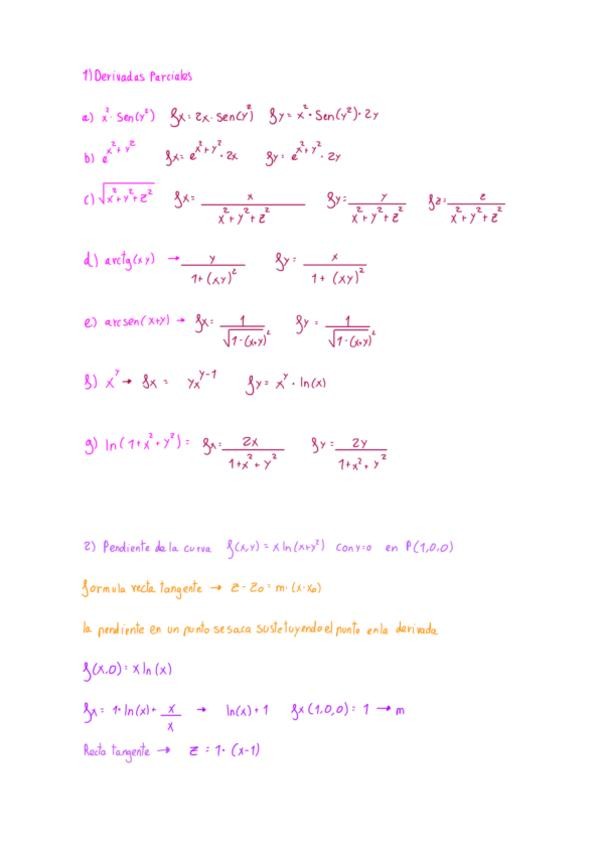 1) Derivadas Parciales
a) x²· Sen(y²) fx= 2x· sen(y²) fy= x²· Sen(y²)· 2y
b) e^(x²+y²) fx= e^(x²+y²)· 2x fy= e^(x²+y²)· 2y
c) √(x²+y²+z²) fx= x/(x²+y²+z²) fy= y/(x²+y²+z²) fz= z/(x²+y²+z²)
d) arctg(xy) → y/(1+(xy)²) fy= x/(1+(xy)²)
e) arcsen(x+y) → fx= 1/√(1-(x+y)²) fy= 1/√(1-(x+y)²)
f) x^y → fx = yx^(y-1) fy= x^y · ln(x)
g) ln(1+x²+y²) = fx= 2x/(1+x²+y²) fy= 2y/(1+x²+y²)
2) Pendiente de la curva f(x,y) = x ln(x+y²) con y=0 en P(1,0,0)
formula recta tangente → z-z₀=m·(x-x₀)
la pendiente en un punto se saca sustetuyendo el punto en la derivada
f(x,0)= x ln(x)
fx= 1· ln(x)+ x/x → ln(x)+1 fx(1,0,0)= 1 → m
Recta tangente → z = 1· (x-1)